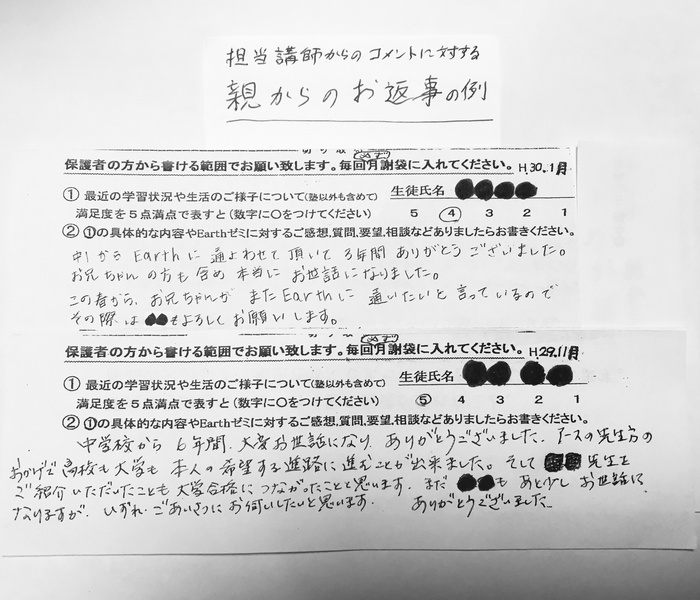 担当講師からのコメントに対する
親からのお返事の例
必ず
保護者の方から書ける範囲でお願い致します。毎回月謝袋に入れてください。 H.30.1月
① 最近の学習状況や生活のご様子について(塾以外も含めて) 生徒氏名
満足度を5点満点で表すと(数字に○をつけてください) 5 4 3 2 1
② ①の具体的な内容やEarthゼミに対するご感想,質問,要望,相談などありましたらお書きください。
中1から Earthに 通よわせて 頂いて 3年間 ありがとう ございました。
お兄ちゃんの方も含め 本当に お世話になりました。
この春から、お兄ちゃんが またEarthに 通いたいと 言っているので
その際は もよろしく お願いします。
必ず
保護者の方から書ける範囲でお願い致します。毎回月謝袋に入れてください。 H29.11月
① 最近の学習状況や生活のご様子について(塾以外も含めて) 生徒氏名
満足度を5点満点で表すと(数字に○をつけてください) 5 4 3 2 1
② ①の具体的な内容やEarthゼミに対するご感想,質問,要望,相談などありましたらお書きください。
中学校から 6年間、大変お世話になり、ありがとうございました。アースの先生方の
おかげで 高校も大学も 本人の希望する進路に進むことが出来ました。そして 先生を
ご紹介いただいたことも 大学合格につながったことと思います。まだ も あと少し お世話に
なりますが、いずれ ごあいさつに お伺いしたいと思います。 ありがとうございました